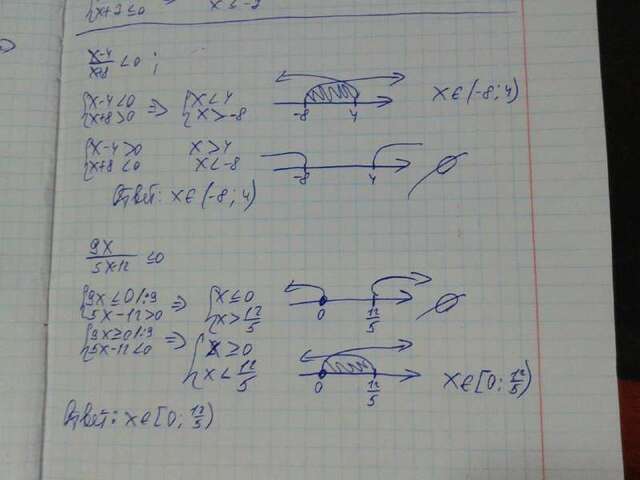 {x+2≤0 => x≤-2
(x-4)/(x+8) <0 ;
{x-4<0 => {x<4
{x+8>0 {x>-8
-8 4
x∈(-8; 4)
{x-4>0 x>4
{x+8<0 x<-8
-8 4 ∅
Ответ: x∈(-8; 4)
9x/(5x-12) ≤0
{9x≤0 /:9 => {x≤0
{5x-12>0 {x>12/5
0 12/5 ∅
{9x≥0 /:9 => {x≥0
{5x-12<0 {x<12/5
0 12/5
x∈[0; 12/5)
Ответ: x∈[0; 12/5)